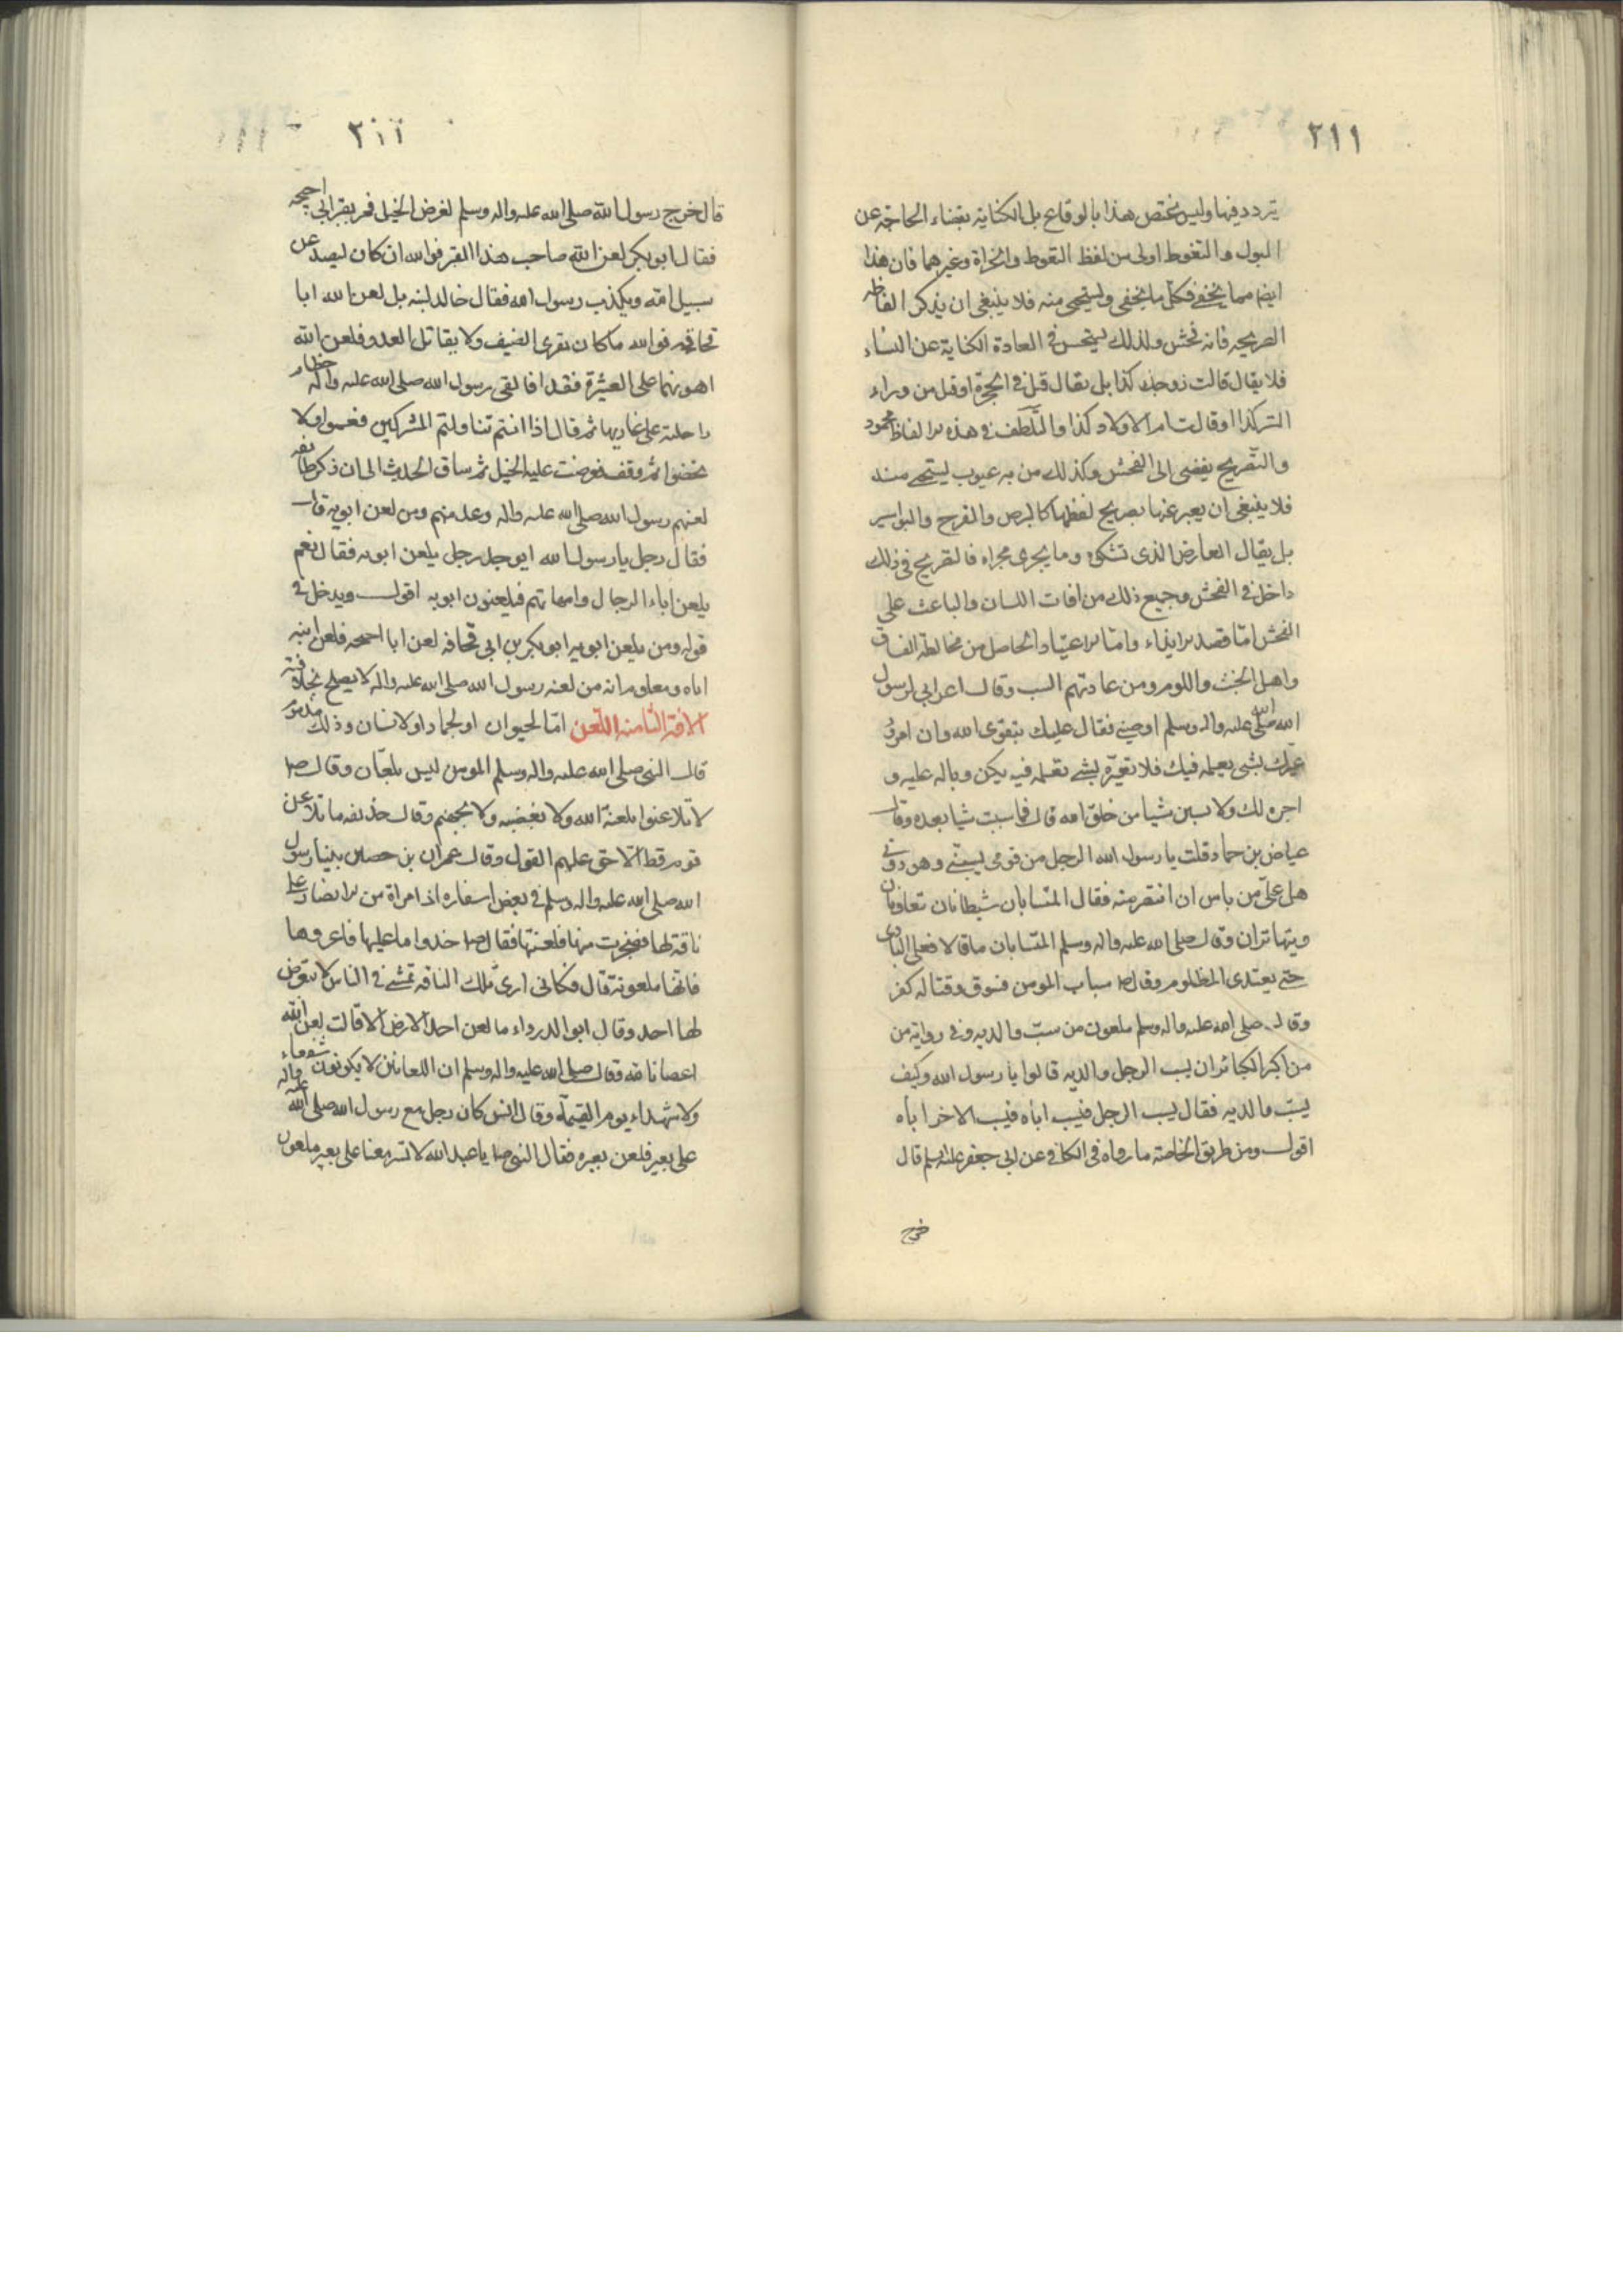 ٢١١
يتردد فيها وليس يختص هذا بالوقاع بل الكناية بقضاء الحاجة عن
البول والتغوط اولى من لفظ التغوط والخراة وغيرهما فان هذا
ايضا مما يخفى فكل ما يخفى ويستحيى منه فلا ينبغي ان يذكر الفاظه
الصريحه فانه فحش ولذلك يستحسن في العادة الكناية عن النساء
فلا يقال قالت زوجتك كذا بل يقال قيل في الحجرة او قيل من وراء
الستر كذا او قالت ام الاولاد كذا والتلطف في هذه الالفاظ محمود
والتصريح يفضى الى الفحش وكذلك من به عيوب يستحيي منه
فلا ينبغي ان يعبر عنها بصريح لفظها كالبرص والقرح والبواسير
بل يقال العارض الذي تشكوه وما يجرى مجراه فالتصريح في ذلك
داخل في الفحش وجميع ذلك من افات اللسان والباعث على
الفحش امّا قصد الايذاء وامّا الاعتياد الحاصل من مخالطة الفساق
واهل الخبث واللوم ومن عادتهم السب وقال اعرابي لرسول
الله صلى الله عليه واله وسلم اوصني فقال عليك بتقوى الله وان امرؤ
عيّرك بشي يعلمه فيك فلا تعيّره بشي تعلمه فيه يكن وباله عليه و
اجره لك ولا تسبن شيا من خلق الله قال فما سببت شيا بعده وقال
عياض بن حماد قلت يا رسول الله الرجل من قومي يسبني وهو دوني
هل علىّ من باس ان انتصر منه فقال المتسابان شيطانان تعاونان
ويتهاتران وقال صلى الله عليه واله وسلم المتسابان ما قالا فعلى البادى
حتى يعتدى المظلوم وقال ص سباب المومن فسوق وقتاله كفر
وقال صلى الله عليه واله وسلم ملعون من سبّ والديه وفي رواية من
من اكبر الكبائر ان يسب الرجل والديه قالوا يا رسول الله وكيف
يسبّ والديه فقال يسب الرجل فيسب اباه فيسب الاخر اباه
اقول ومن طريق الخاصة ما رواه في الكافي عن ابي جعفر عليه السلم قال
خرج
قال خرج رسول الله صلى الله عليه واله وسلم لعرض الخيل فمر بقبر ابي احيحه
فقال ابو بكر لعن الله صاحب هذا القبر فوالله ان كان ليصد عن
سبيل الله ويكذب رسول الله فقال خالد ابنه بل لعن الله ابا
قحافه فوالله ما كان يقرى الضيف ولا يقاتل العدو فلعن الله
اهونهما على العشيرة فقدا فالقى رسول الله صلى الله عليه واله خطام
راحلته على غاربها ثم قال اذا انتم تناولتم المشركين فعموا ولا
تخصوا ثم وقف فعرضت عليه الخيل ثم ساق الحديث الى ان ذكر طائفه
لعنهم رسول الله صلى الله عليه واله وعد منهم ومن لعن ابويه قال
فقال رجل يا رسول الله ايوجد رجل يلعن ابويه فقال نعم
يلعن اباء الرجال وامهاتهم فيلعنون ابويه اقول ويدخل في
قوله ومن يلعن ابويه ابو بكر بن ابي قحافه لعن ابا احيحه فلعن ابنه
اباه ومعلوم انه من لعنه رسول الله صلى الله عليه واله لا يصلح لخلافته
الافة الثامنه اللعن امّا لحيوان او لجماد او لانسان وذلك مذموم
قال النبي صلى الله عليه واله وسلم المومن ليس بلعّان وقال ص
لا تلاعنوا بلعنة الله ولا بغضبه ولا بجهنم وقال حذيفه ما تلاعن
قوم قط الا حق عليهم القول وقال عمران بن حصين بينا رسول
الله صلى الله عليه واله وسلم في بعض اسفاره اذ امراة من الانصار على
ناقة لها فضجرت منها فلعنتها فقال ص خذوا ما عليها فاعروها
فانها ملعونة قال فكاني ارى تلك الناقه تمشى في الناس لا يتعرض
لها احد وقال ابو الدرداء ما لعن احد الارض الا قالت لعن الله
اعصانا لله وقال صلى الله عليه واله وسلم ان اللعانين لا يكونون شفعاء
ولا شهداء يوم القيمة وقال انس كان رجل مع رسول الله صلى الله عليه واله
على بعير فلعن بعيره فقال النبي ص يا عبد الله لا تسر معنا على بعير ملعون